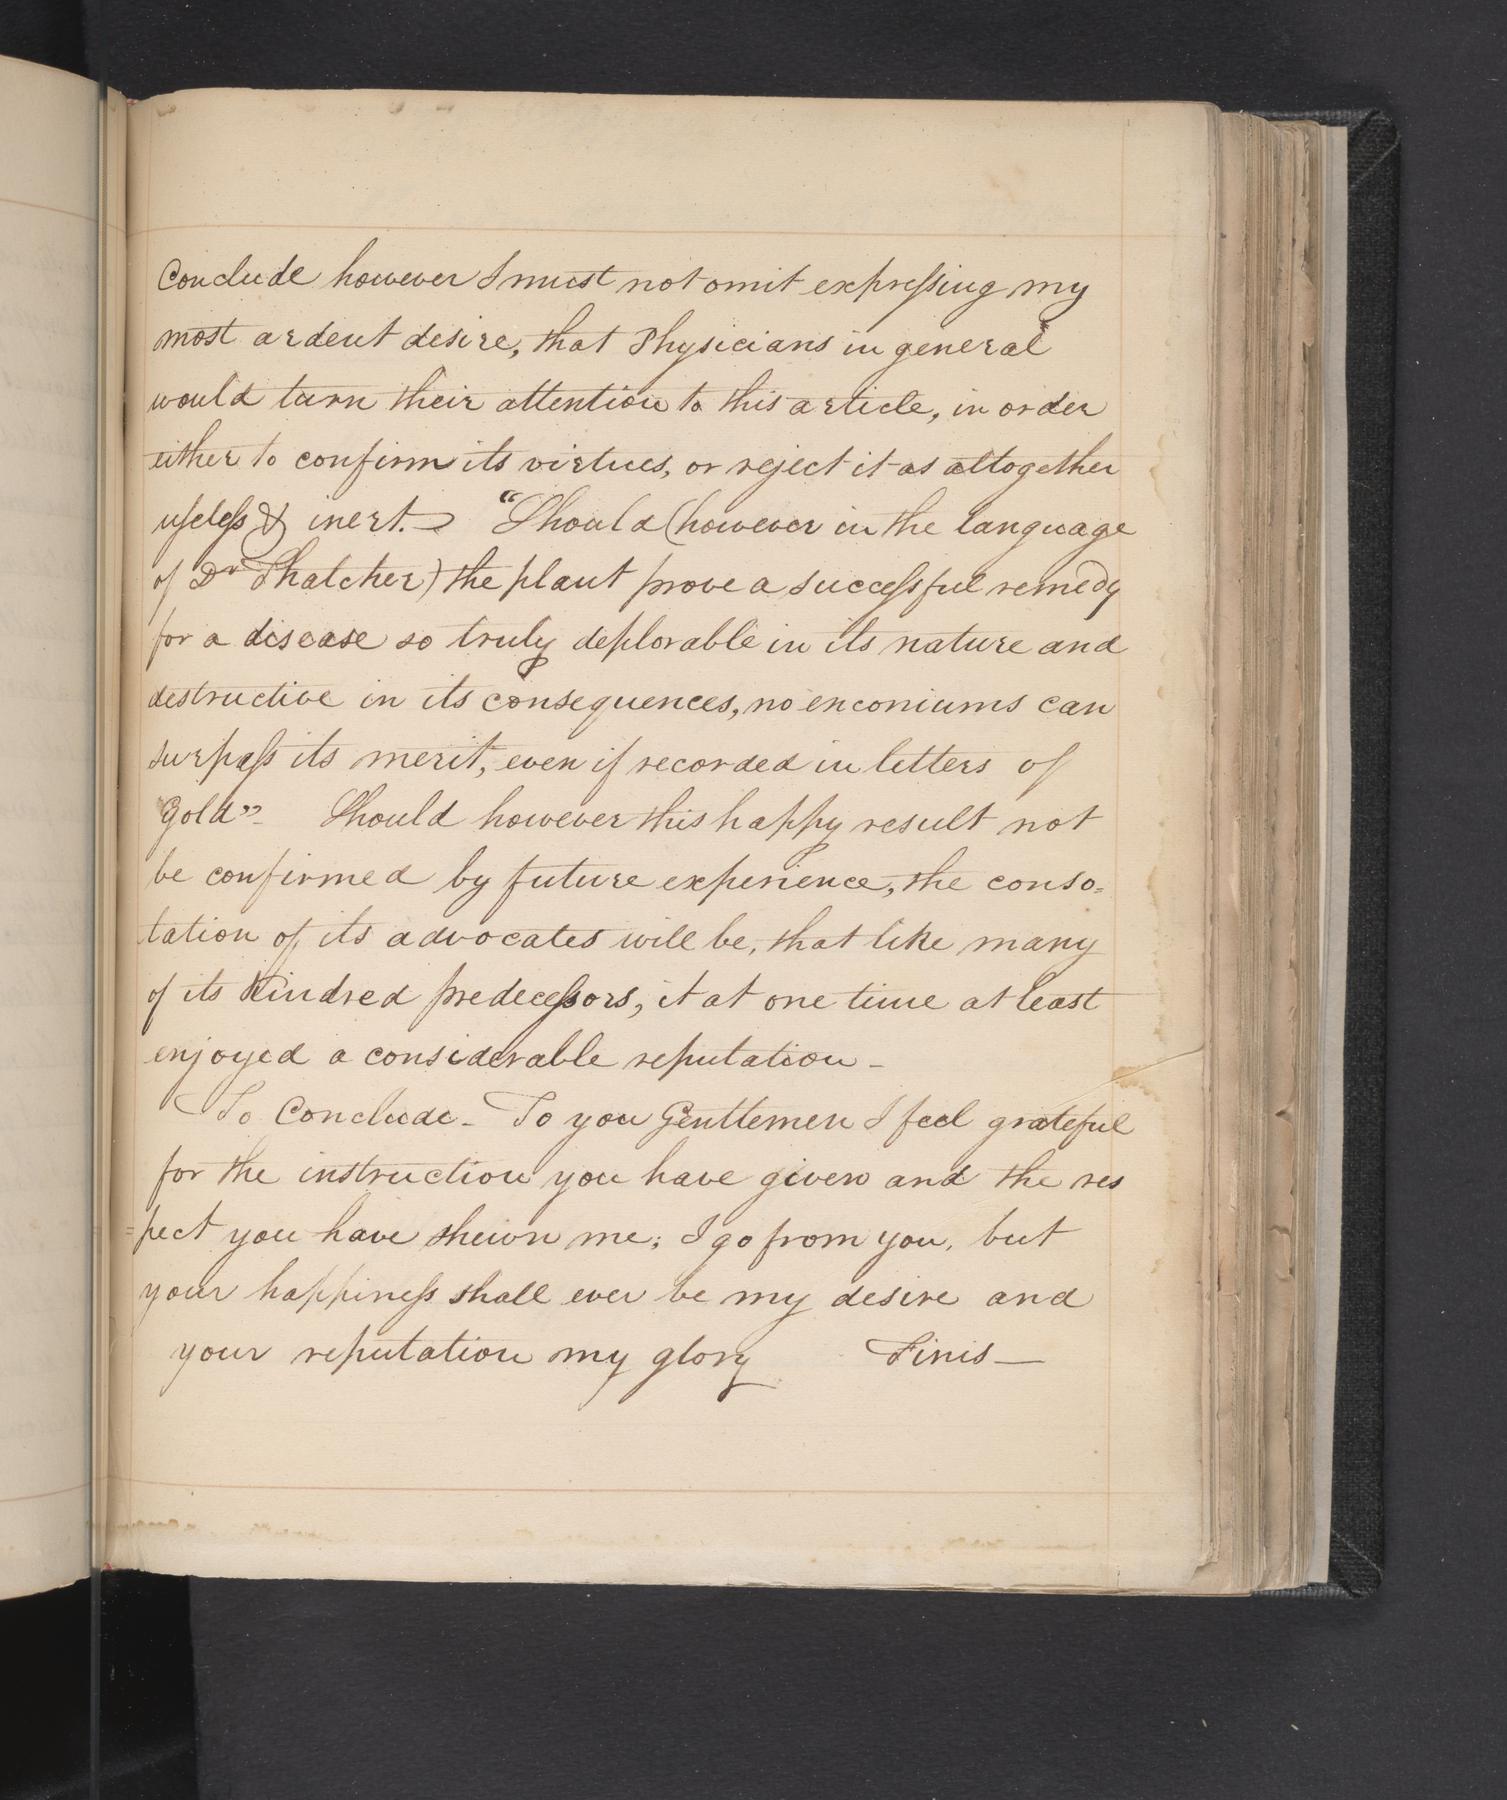 Conclude however I must not omit expressing my
most ardent desire, that Physicians in general
would turn their attention to this article, in order
either to confirm its virtues, or reject it as altogether
useless & inert. "Should (however in the language
of Dr Thatcher) the plant prove a successful remedy
for a disease so truly deplorable in its nature and
destructive in its consequences, no enconiums can
surpass its merit, even if recorded in letters of
Gold" - Should however this happy result not
be confirmed by future experience, the conso=
lation of its advocates will be, that like many
of its Kindred predecessors, it at one time at least
enjoyed a considerable reputation -
To Conclude - To you Genttemen I feel grateful
for the instruction you have given and the res
=pect you have shewn me; I go from you, but
your happiness shall ever be my desire and
your reputation my glory Finis —